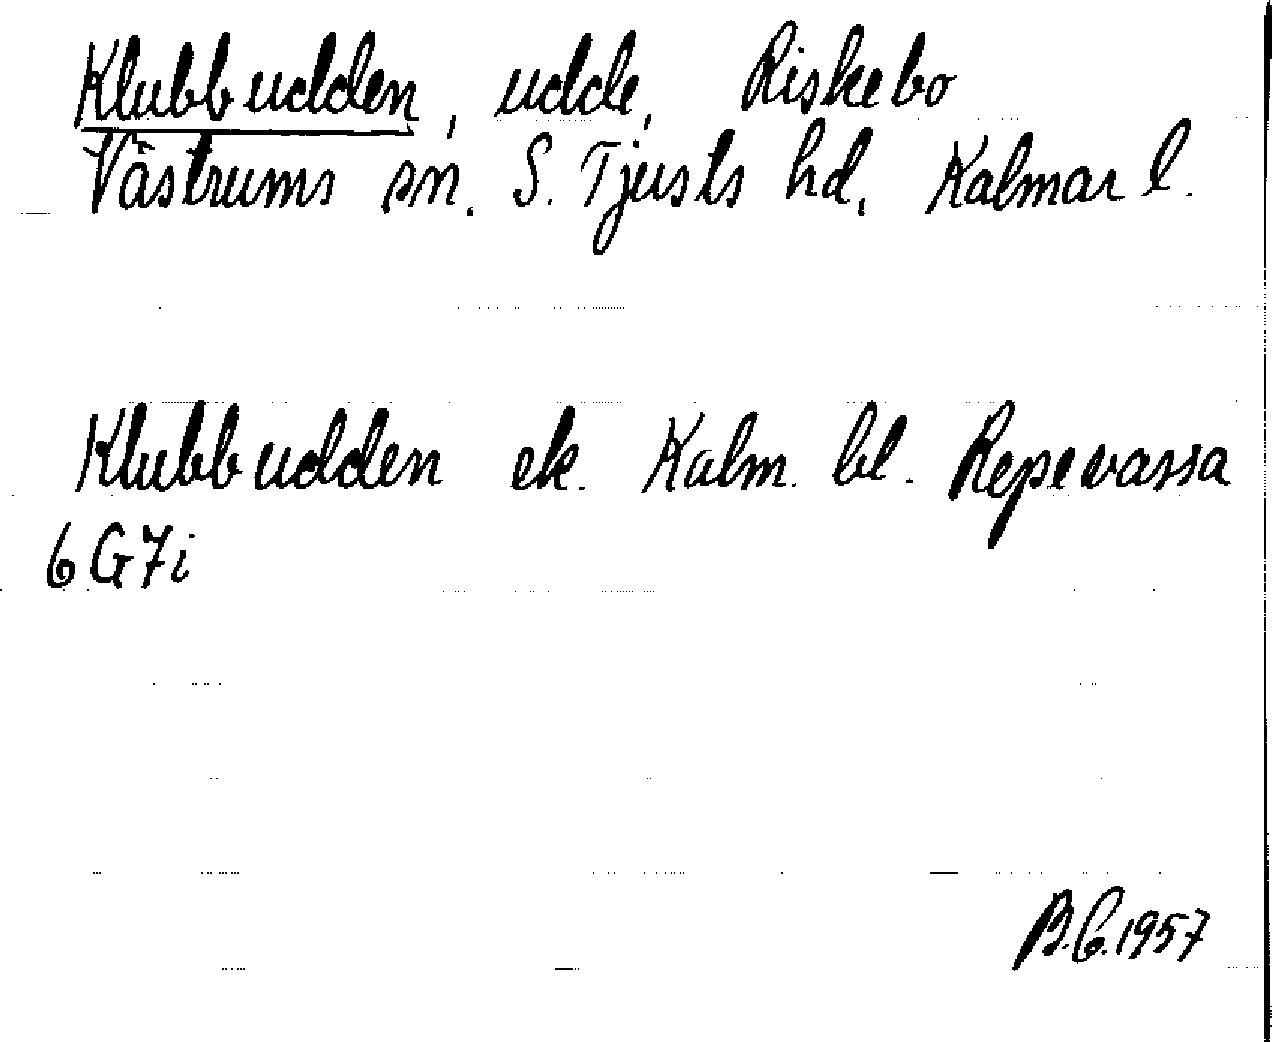 Klubbudden, udde, Riskebo
Västrums sn. S. Tjusts hd, Kalmar l.
Klubbudden ek. Kalm. bl. Repevassa
6G7i
B.C. 1957